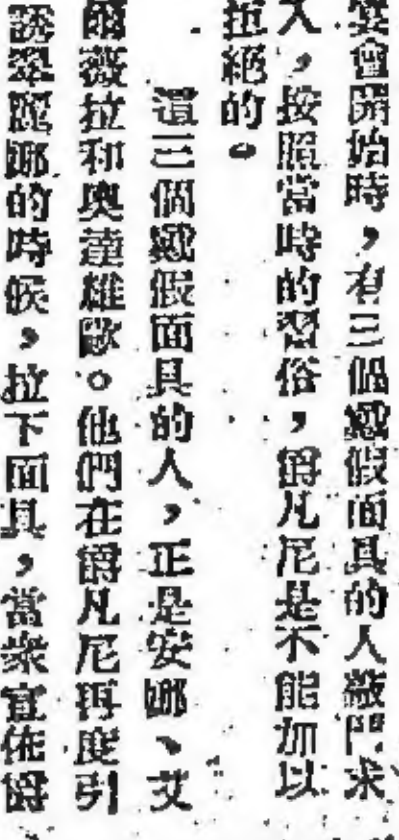 宴會開始時，有三個戴假面具的人敲門求
入，按照當時的習俗，爵凡尼是不能加以
拒絕的。
這三個戴假面具的人，正是安娜、艾
爾薇拉和奧達雄歐。他們在爵凡尼再度引
誘翠麗娜的時候，拉下面具，當衆宣佈爵